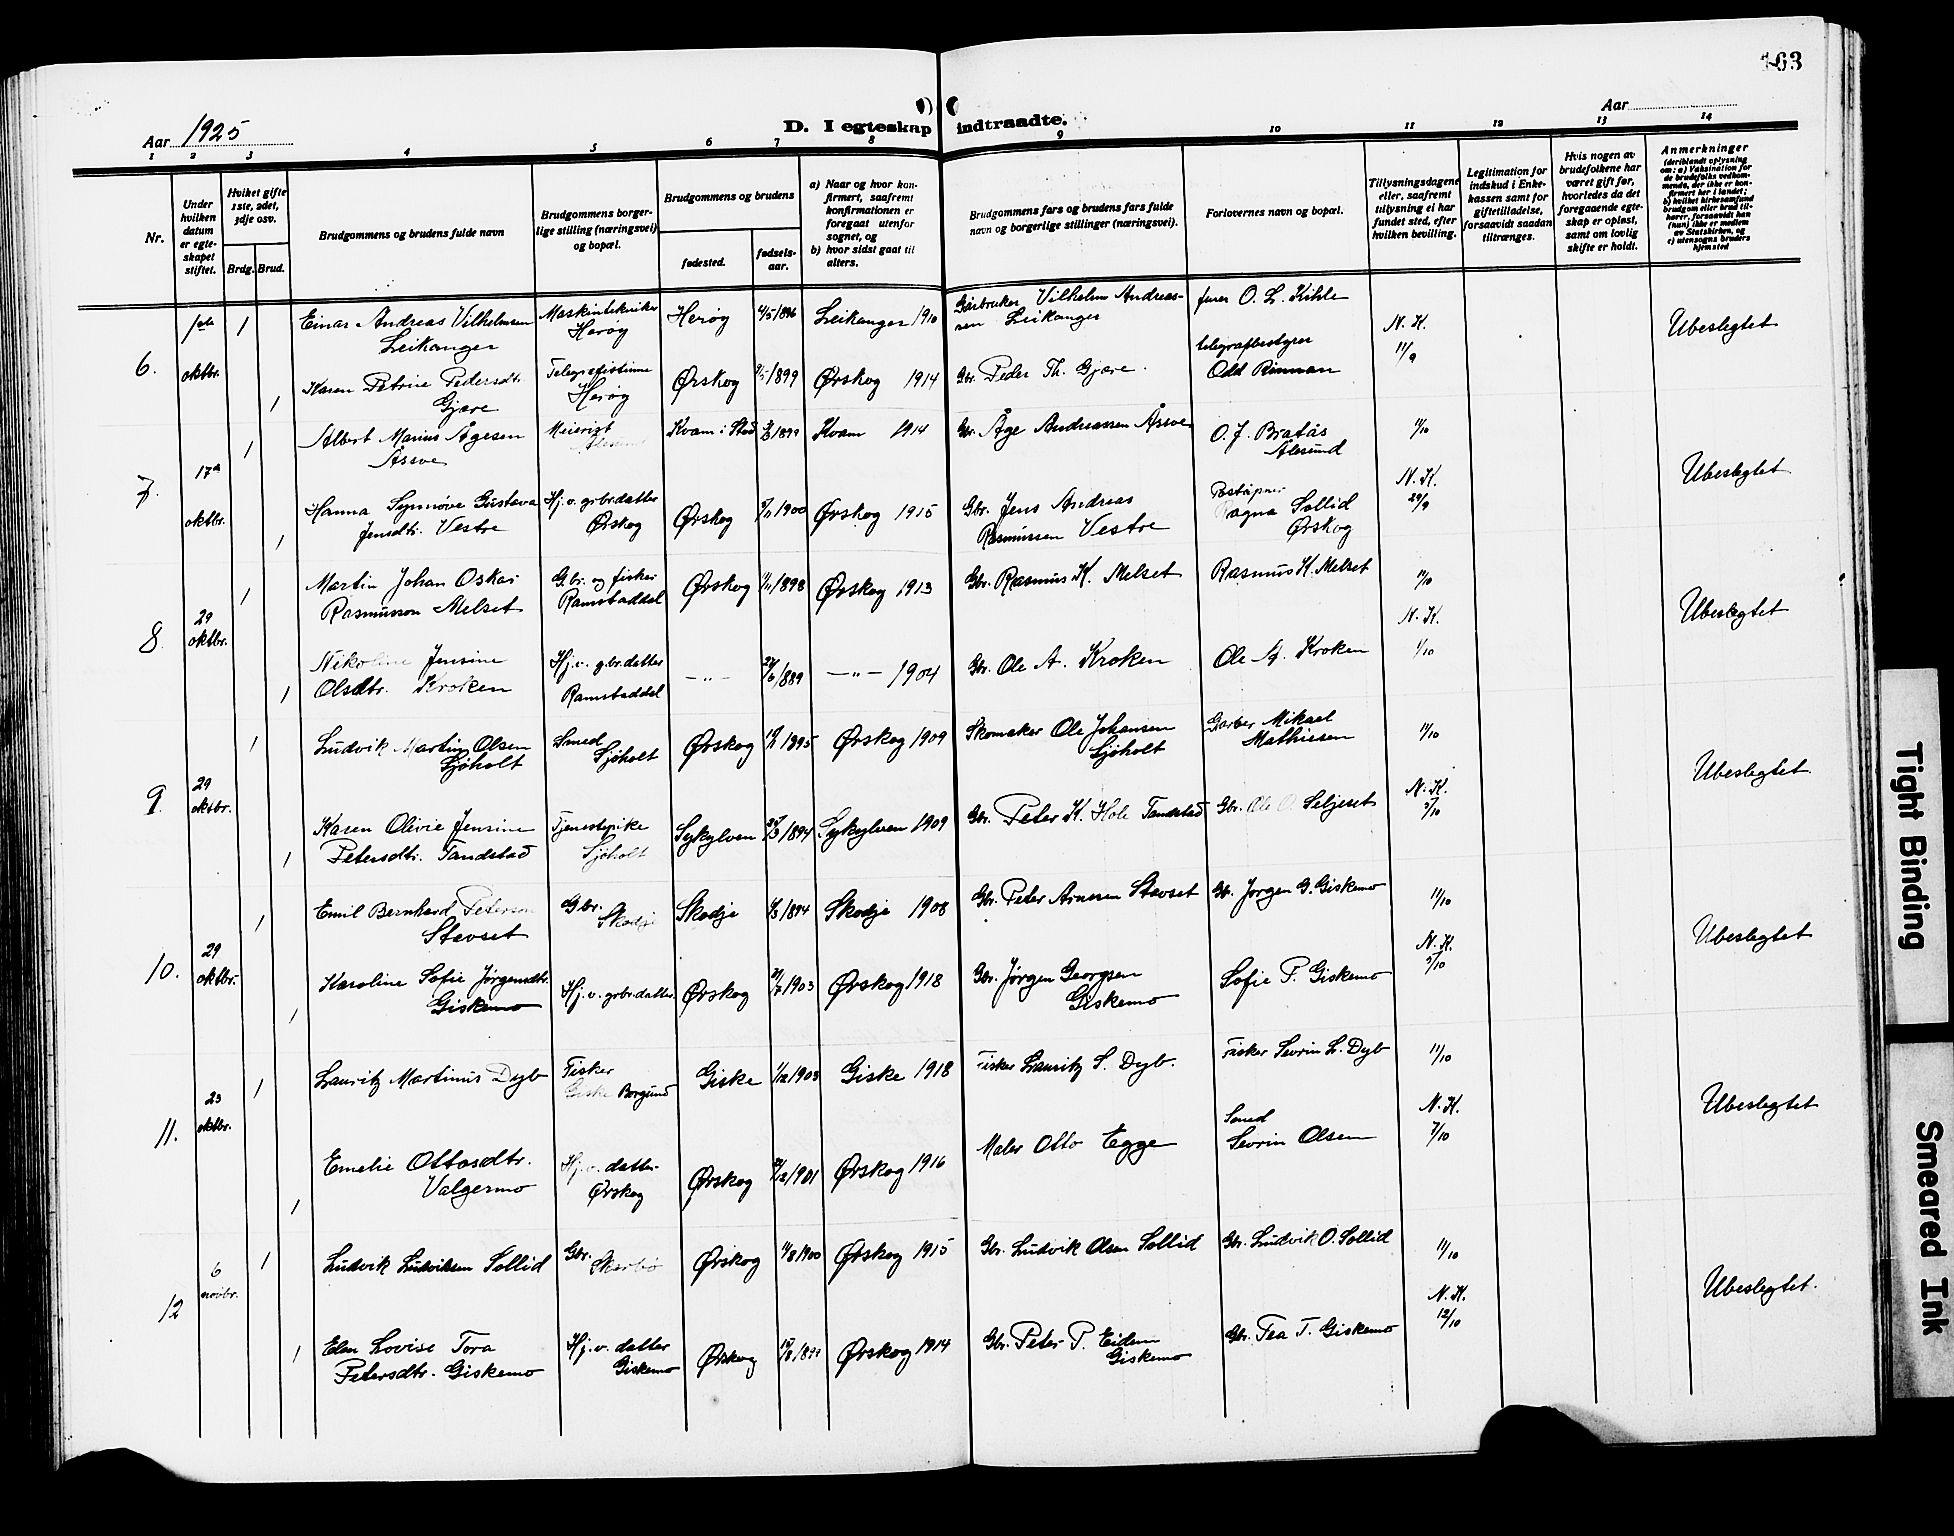 163
Aar 1925
D. I egteskap indtraadte.
Aar
1 2 3 4 5 6 7 8 9 10 11 12 13 14
Nr.
Under hvilken datum er egteskapet stiftet.
Hvilket gifte 1ste, 2det, 3dje osv.
Brdg. Brud.
Brudgommens og brudens fulde navn
Brudgommens borgerlige stilling (næringsvei) og bopæl.
Brudgommens og brudens
fødested.
fødselsaar.
a) Naar og hvor konfirmert, saafremt konfirmationen er foregaat utenfor sognet, og
b) hvor sidst gaat til alters.
Brudgommens fars og brudens fars fulde navn og borgerlige stillinger (næringsvei).
Forlovernes navn og bopæl.
Tillysningsdagene eller, saafremt tillysning ei har fundet sted, efter hvilken bevilling.
Legitimation for indskud i Enkekassen samt for giftetilladelse, forsaavidt saadan tiltrænges.
Hvis nogen av brudefolkene har været gift før, hvorledes da det foregaaende egteskap er opløst, samt om lovlig skifte er holdt.
Anmerkninger
(deriblandt oplysning om: a) Vaksination for de brudefolks vedkommende, der ikke er konfirmert her i landet; b) hvilket kirkesamfund brudgom eller brud tilhører, forsaavidt han (hun) ikke er medlem av Statskirken, og c) utensogns bruders hjemsted
6. 1ste oktbr.
1 Einar Andreas Vilhelmsen Leikanger
Maskintekniker Herøy
Herøy 4/5 1896
Leikanger 1910
Gårbruker Vilhelm Andreassen Leikanger
O. L. Kihle
N. K. 11/9
Ubeslegtet
1 Karen Petrine Pedersdtr. Gjære
Telegrafistinne Herøy
Ørskog 1899
Ørskog 1914
Gbr. Peder Th. Gjære.
telegrafbestyrer Odd Rinnan
7. 17de oktbr.
1 Albert Marius Ågesen Åssve
Meierist Ålesund
Kvam i Stod 1899
Kvam 1914
Gbr. Åge Andreassen Åssve
O. J. Bratås Ålesund
11/10
N. K. 29/9
Ubeslegtet
1 Hanna Synnøve Gustava Jensdtr. Vestre
Hj. v. grbr.datter Ørskog
Ørskog 1900
Ørskog 1915
Gbr. Jens Andreas Rasmussen Vestre
Poståpner Ragna Sollid Ørskog
8. 29 oktbr.
1 Martin Johan Oskar Rasmusson Melset
G.br. og fisker Ramstaddal
Ørskog 1/11 1898
Ørskog 1913
Gbr. Rasmus K. Melset
Rasmus K. Melset
11/10
N. K. 1/10
Ubeslegtet
1 Nikoline Jensine Olsdtr. Kroken
Hj. v. g.br.datter Ramstaddal
—„— 1889
—„— 1904
Gbr. Ole A. Kroken
Ole A. Kroken
9. 29 oktbr.
1 Ludvik Martin Olsen Sjøholt
Smed Sjøholt
Ørskog 1895
Ørskog 1909
Skomaker Ole Johansen Sjøholt
Garver Mikael Mathissen
11/10
N. K. 5/10
Ubeslegtet.
1 Karen Olivie Jensine Petersdtr. Tandstad
Tjenestepike Sjøholt
Sykylven 1894
Sykylven 1909
Gbr. Peter K. Hole Tandstad
Gbr. Ole O. Seljeset
10. 29 oktbr.
1 Emil Bernhard Peterson Stavset
Gbr. Skodje
Skodje 1894
Skodje 1908
Gbr. Peter Arnesen Stavset
Gbr. Jørgen G. Giskemo
11/10
N. K. 5/10
Ubeslegtet
1 Karoline Sofie Jørgensdtr. Giskemo
Hj. v. grbr.datter.
Ørskog 1903
Ørskog 1918
Gbr. Jørgen Georgsen Giskemo
Sofie P. Giskemo
11. 23 oktbr.
1 Lauritz Martinus Dyb
Fisker Giske Borgund
Giske 1/12 1903
Giske 1918
Fisker Lauritz S. Dyb.
Fisker Sevrin L. Dyb
11/10
N. K. 7/10
Ubeslegtet
1 Emelie Ottosdtr. Valgermo
Hj. v. datter Ørskog
Ørskog 1901
Ørskog 1916
Maler Otto Egge
Smed Sevrin Olsen
12 6 novbr.
1 Ludvik Ludviksen Sollid
Gbr. Skarbø
Ørskog 1900
Ørskog 1915
Gbr. Ludvik Olsen Sollid
Gbr. Ludvik O. Sollid
11/10
N. K. 12/10
Ubeslegtet.
1 Elen Lovise Tora Petersdtr. Giskemo
Hj. v. datter Giskemo
Ørskog 1899
Ørskog 1914
Gbr. Peter P. Eidem Giskemo
Gbr. Tea T. Giskemo
Tight Binding
Smeared Ink